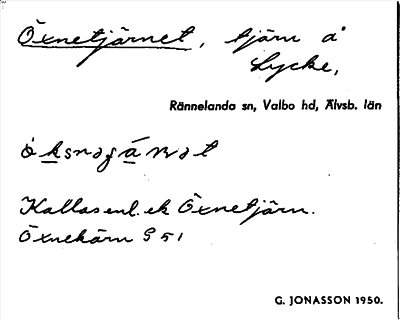 Öxnetjärnet, tjärn å
Lycke,
Rännelanda sn, Valbo hd, Älvsb. län
Kallas enl. ek Öxnetjärn.
Öxnekärn G 51
G. JONASSON 1950.